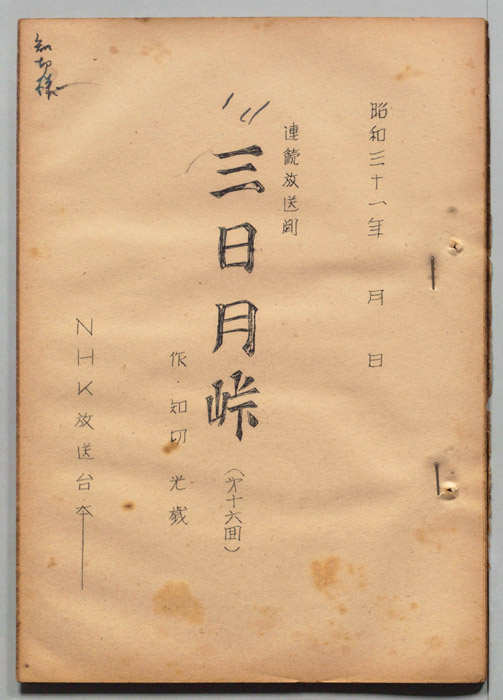 昭和三十一年　月　日
連続放送劇
三日月峠
（第十六回）
作・知切光歳
NHK放送台本
知切様